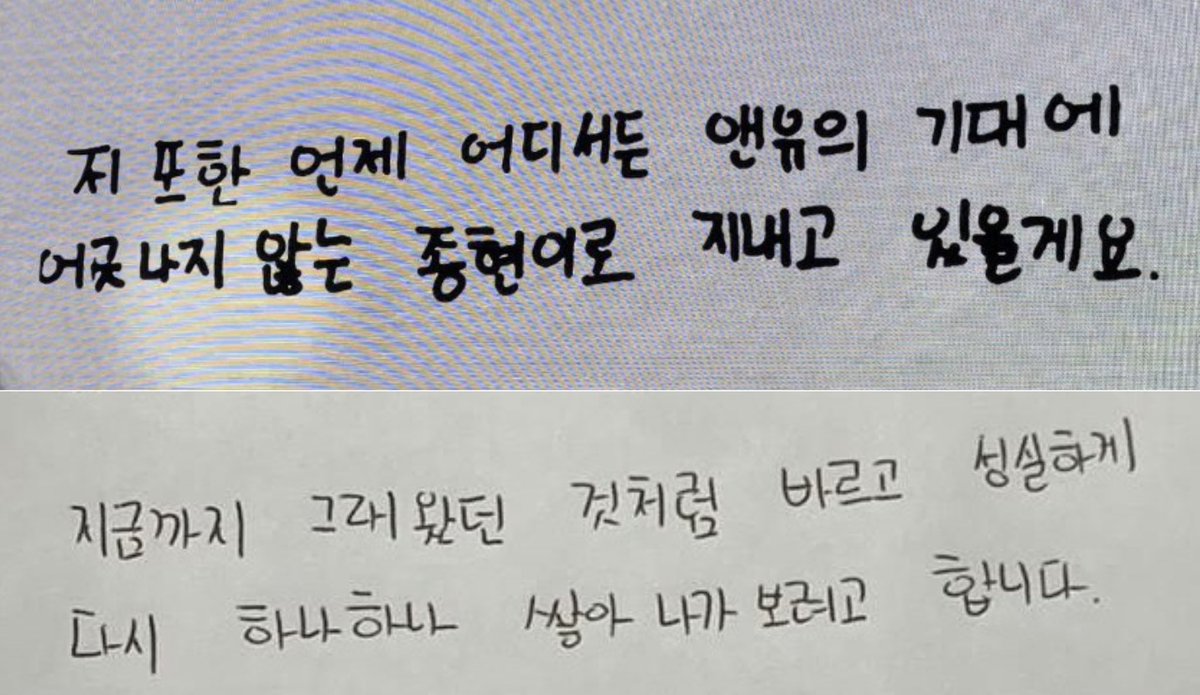 저 또한 언제 어디서든 앤유의 기대에
어긋나지 않는 종현이로 지내고 있을게요.
지금까지 그래왔던 것처럼 바르고 성실하게
다시 하나하나 쌓아 나가 보려고 합니다.